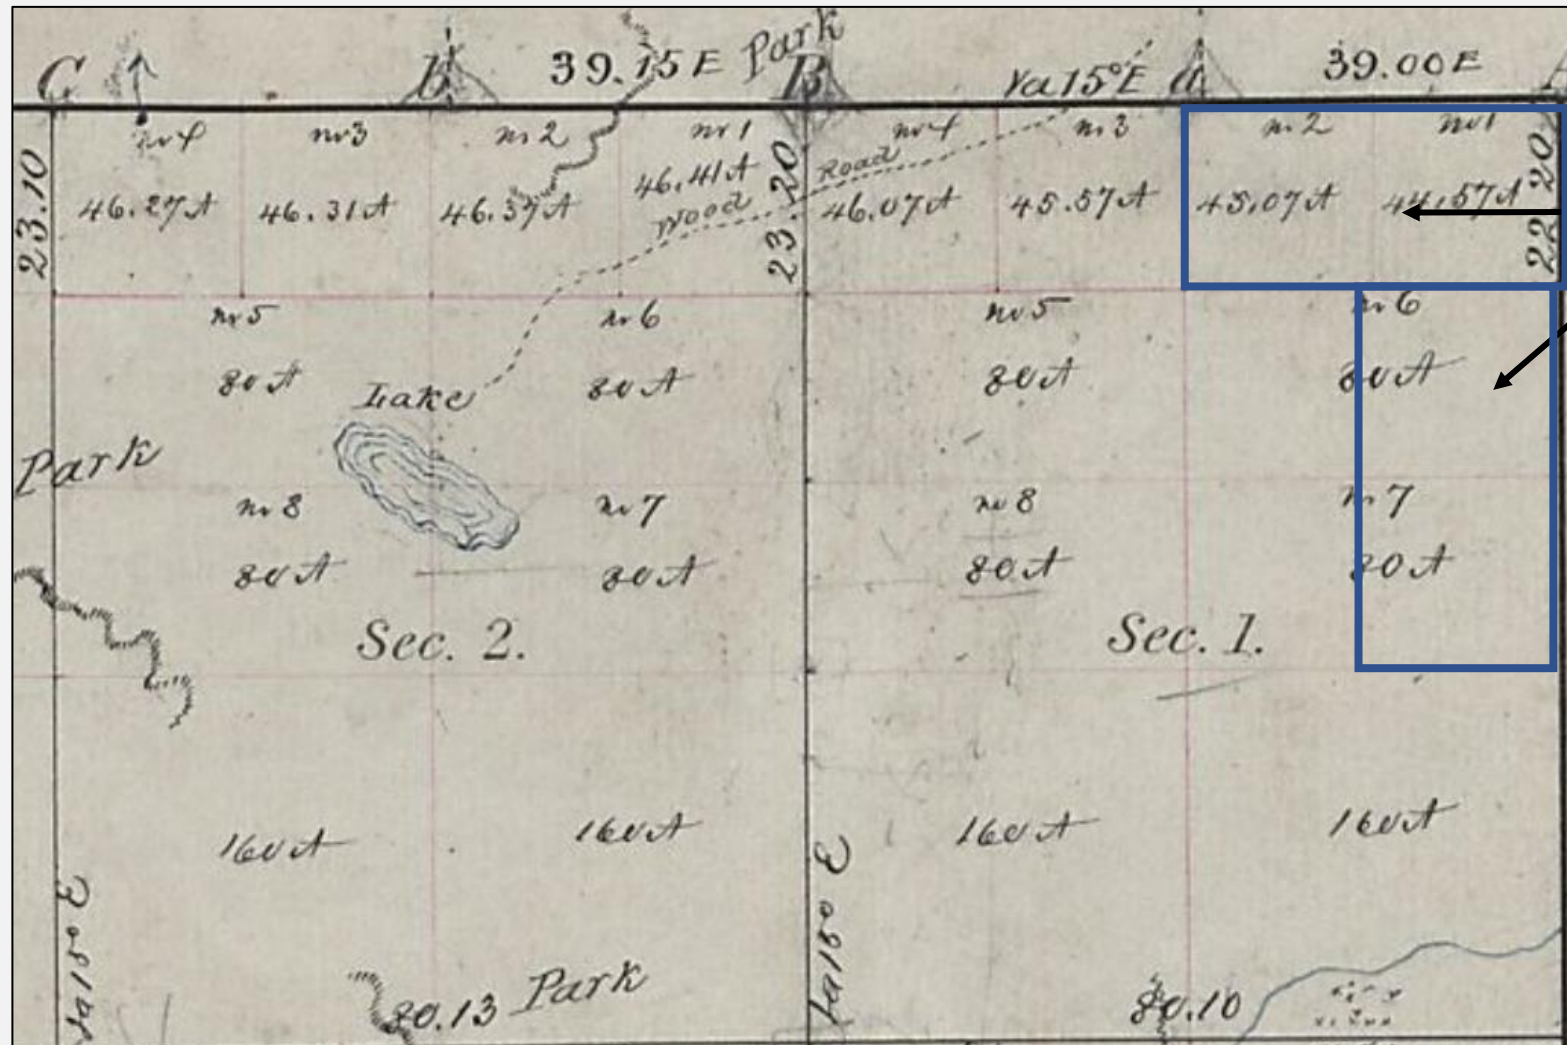 C b 39.15 E Park B Va 15° E a 39.00 E
nr 4 nr 3 nr 2 nr 1 nr 4 nr 3 nr 2 nr 1
46.27 A 46.31 A 46.37 A 46.41 A 46.07 A 45.57 A 45.07 A 44.57 A
23.10 23 20 22 20
Wood Road
nr 5 nr 6 nr 5 nr 6
80 A 80 A 80 A 80 A
Lake
Park
nr 8 nr 7 nr 8 nr 7
80 A 80 A 80 A 80 A
Sec. 2. Sec. 1.
160 A 160 A 160 A 160 A
Va 15° E Va 15° E
80.13 Park 80.10